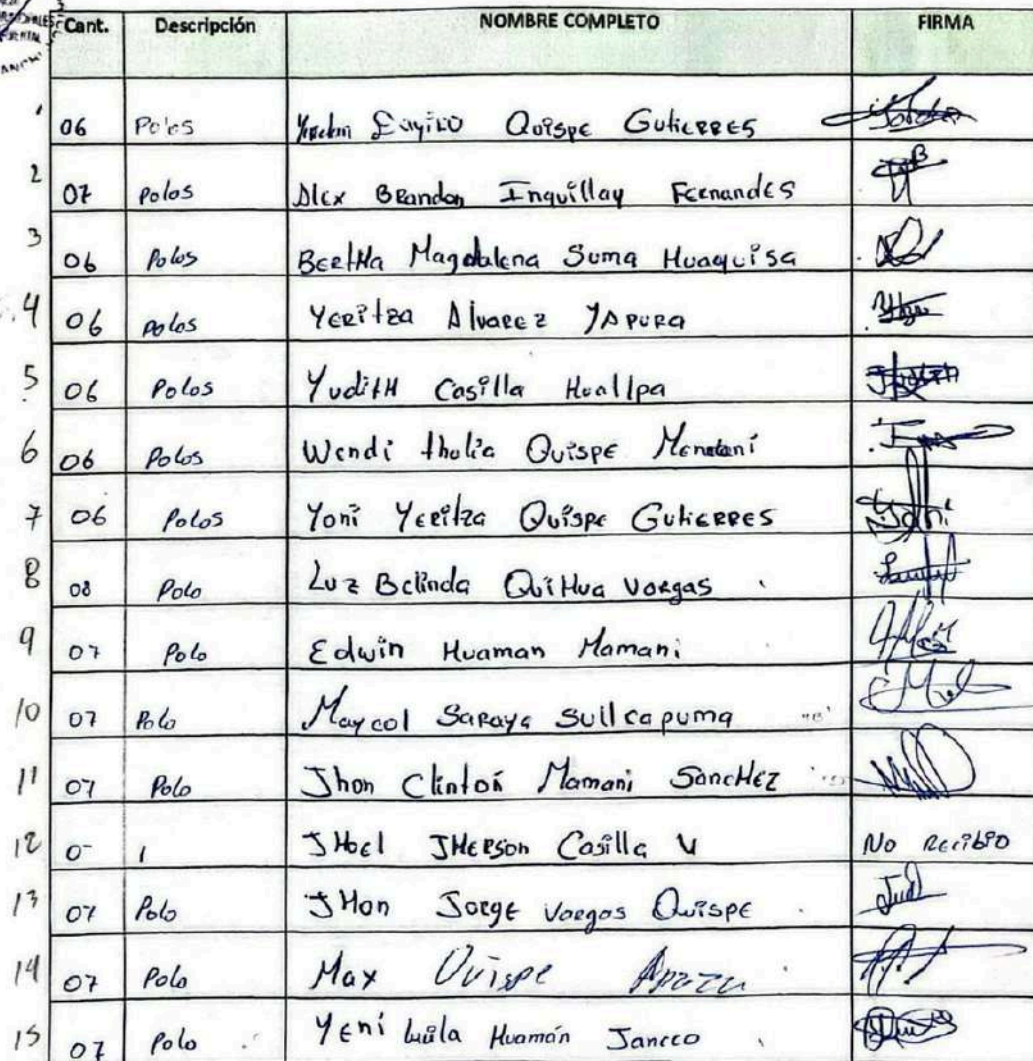 Cant. Descripción NOMBRE COMPLETO FIRMA
1 06 Polos Quispe Gutierres
2 07 Polos Alex Brandon Inquillay Fernandes
3 06 Polos Bertha Magdalena Suma Huaquisa
4 06 Polos Yeritza Alvarez Yapura
5 06 Polos Yudith Casilla Huallpa
6 06 Polos Wendi tholia Quispe
7 06 Polos Yoni Yeritza Quispe Gutierres Yoni
8 08 Polo Luz Belinda Quihua Vargas
9 07 Polo Edwin Huaman Mamani
10 07 Polo Maycol Saraya Sullcapuma
11 07 Polo Jhon Clinton Mamani Sanchez
12 0- Jhoel Jherson Casilla V No Recibio
13 07 Polo Jhon Jorge Vargas Quispe
14 07 Polo Max Quispe Apaza
15 07 Polo Yeni Huamán Jancco